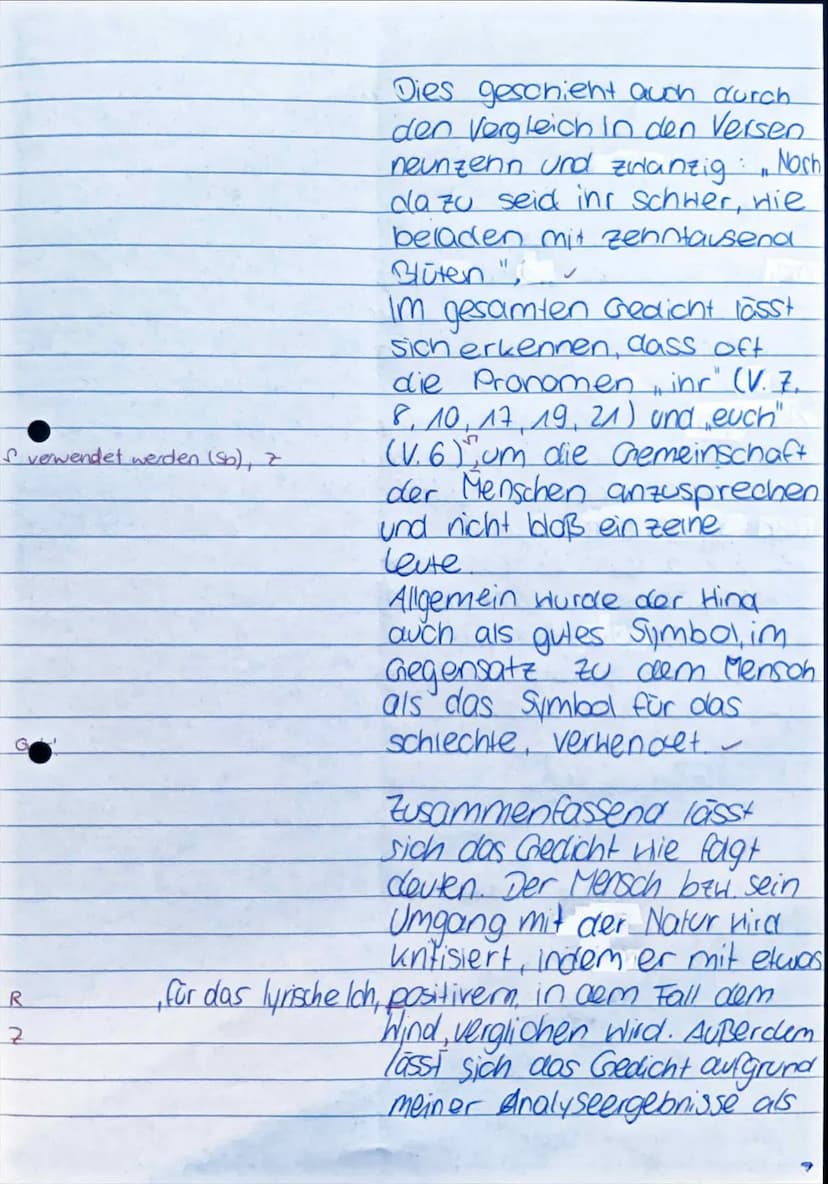 Dies geschieht auch durch
den Vergleich in den Versen
neunzehn und zwanzig: „Noch
dazu seid ihr schwer, wie
beladen mit zehntausend
Blüten.", ✓
Im gesamten Gedicht lässt
sich erkennen, dass oft
die Pronomen „ihr" (V. 7,
8, 10, 17, 19, 21) und „euch"
verwendet werden (Sb), Z
(V. 6), um die Gemeinschaft
der Menschen anzusprechen
und nicht bloß einzelne
Leute
Allgemein wurde der Wind
auch als gutes Symbol, im
Gegensatz zu dem Mensch
als das Symbol für das
schlechte, verwendet. ✓
Zusammenfassend lässt
sich das Gedicht wie folgt
deuten. Der Mensch bzw. sein
Umgang mit der Natur wird
kritisiert, indem er mit etwas
R
, für das lyrische Ich, positivem, in dem Fall dem
Z
Wind, verglichen wird. Außerdem
lässt sich das Gedicht aufgrund
meiner Analyseergebnisse als